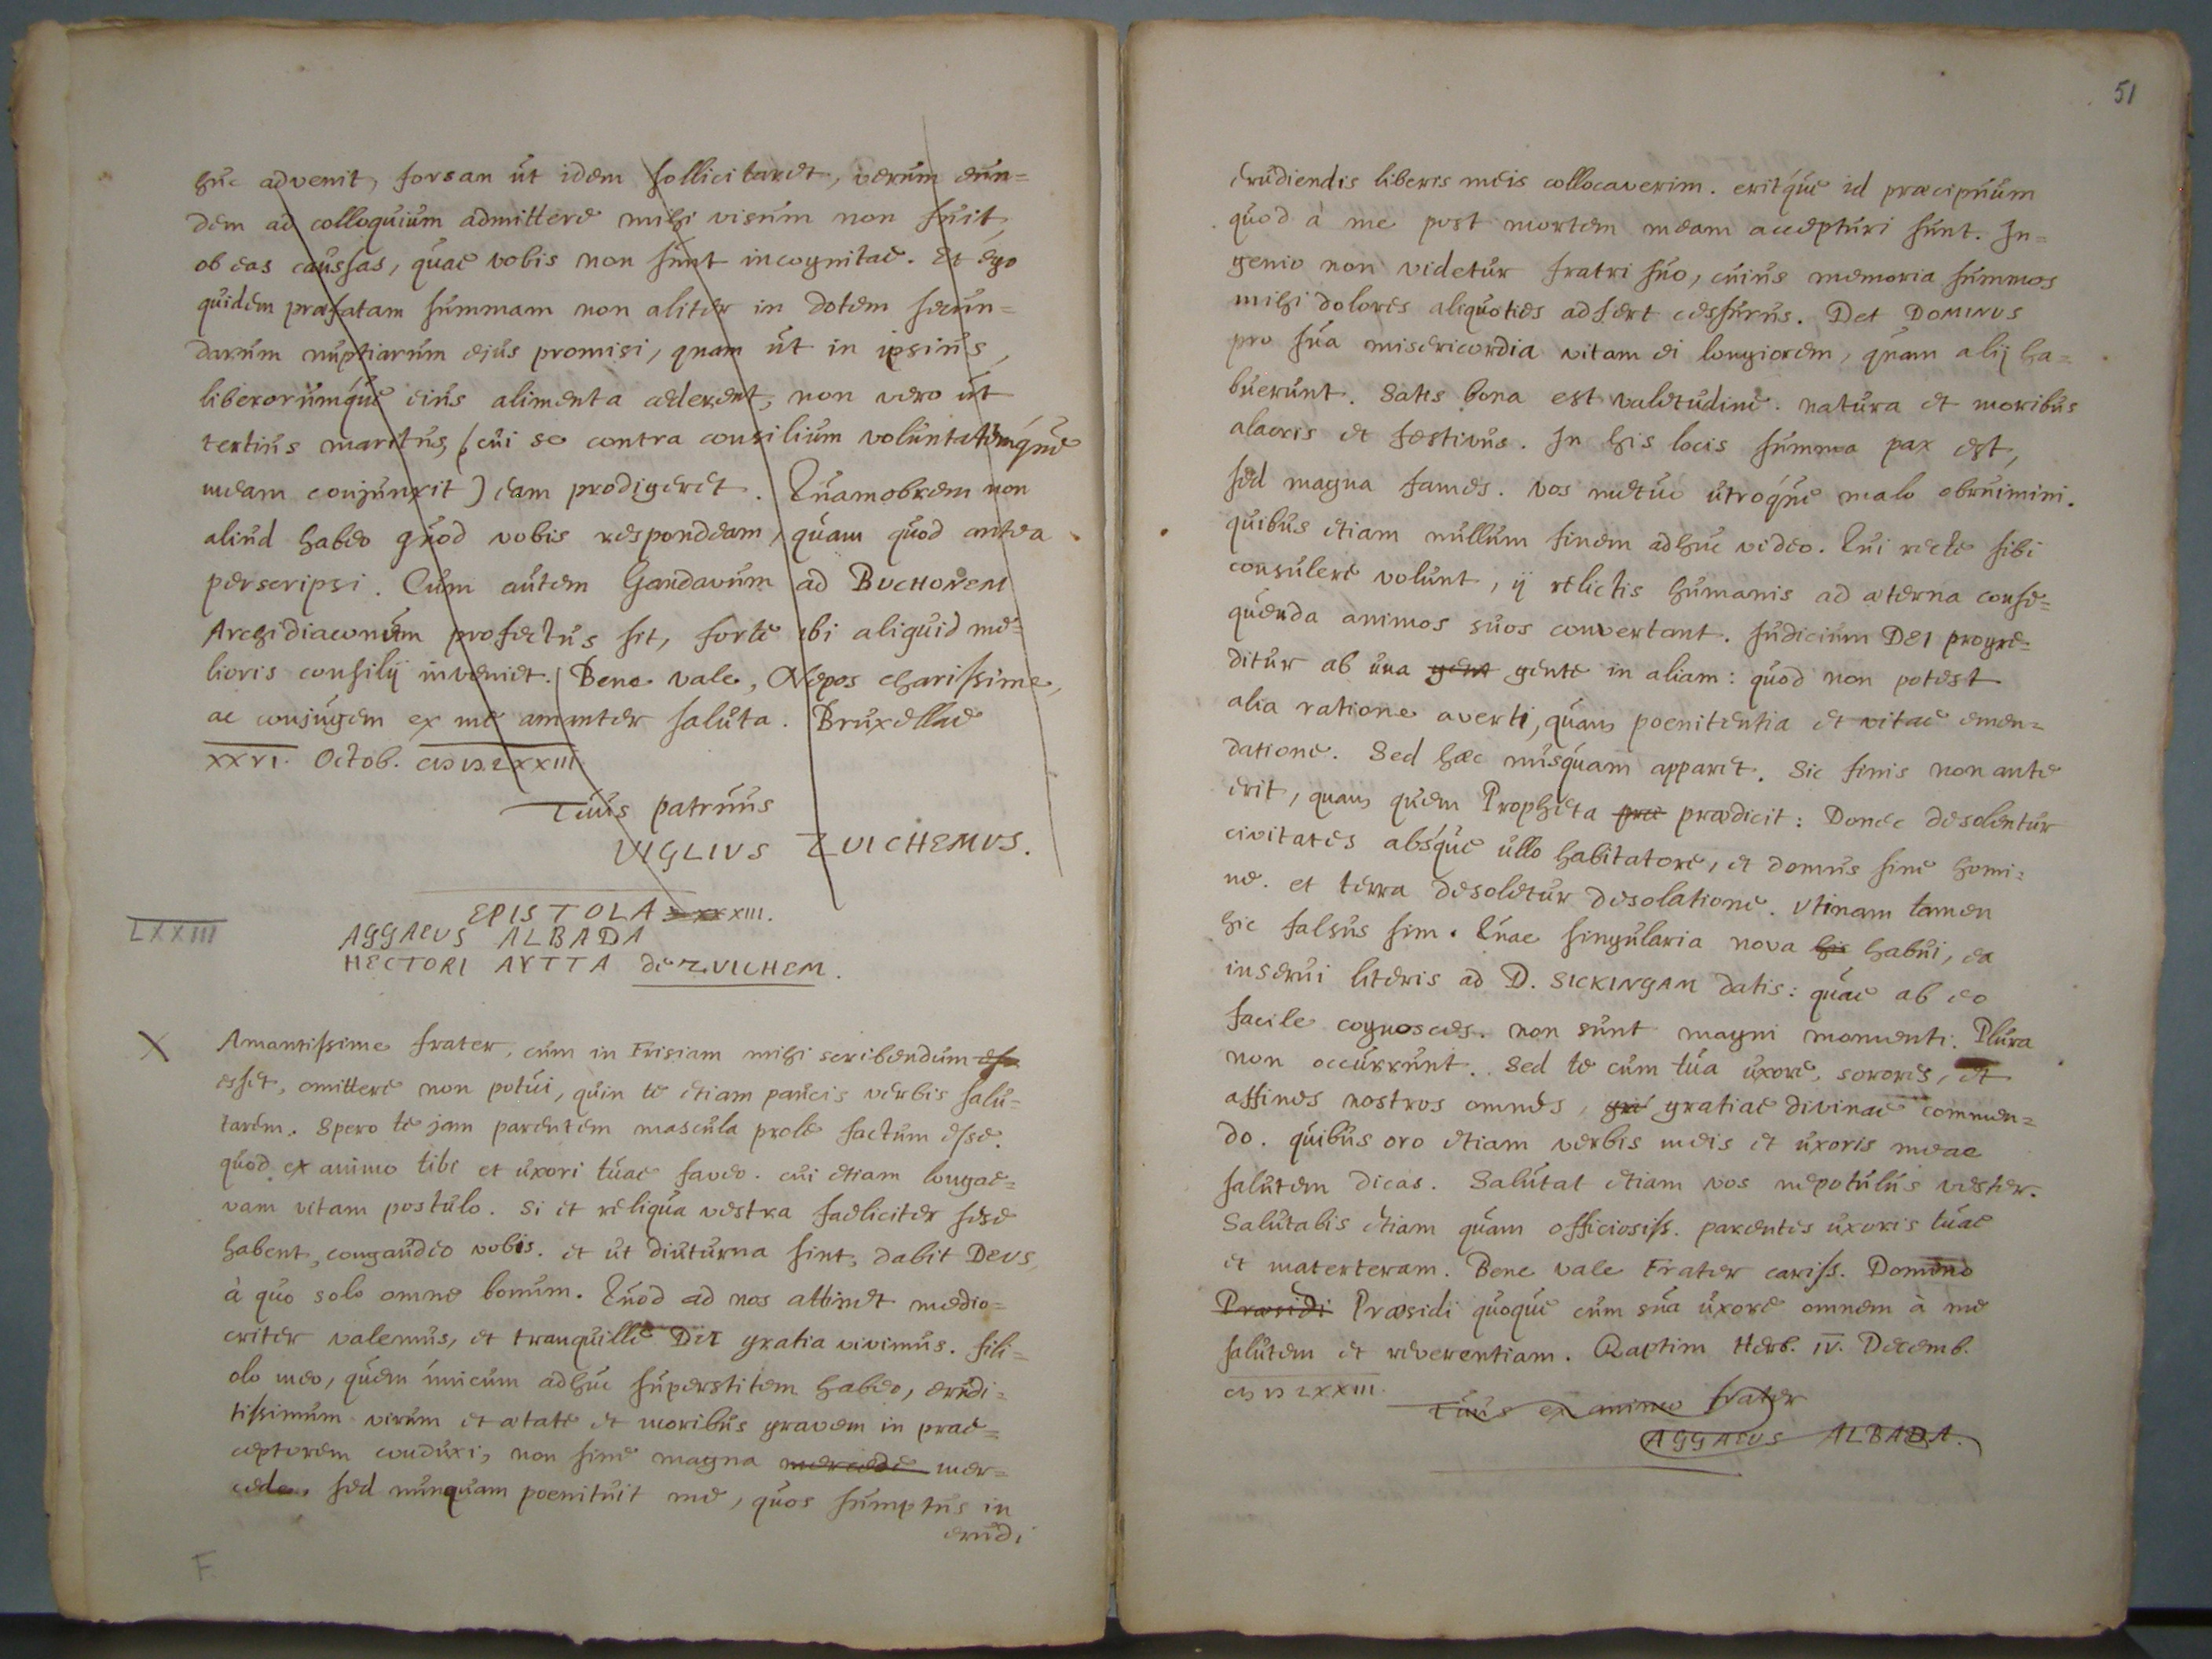 huc advenit, forsan ut idem sollicitaret, verum eun=
dem ad colloquium admittere mihi visum non fuit,
ob eas caussas, quae vobis non sunt incognitae. Et ego
quidem praefatam summam non aliter in dotem secun=
darum nuptiarum ejus promisi, quam ut in ipsius,
liberorumque eius alimenta cederent, non vero ut
tertius maritus, (cui se contra consilium voluntatemque
meam conjunxit) eam prodigeret. Quamobrem non
aliud habeo quod vobis respondeam, quam quod antea
perscripsi. Cum autem Gandavum ad BUCHONEM
Archidiaconum profectus sit, forte ibi aliquid me=
lioris consilij inveniet. Bene vale, Nepos charissime,
ac conjugem ex me amanter saluta. Bruxellae
XXVI. Octob. CIƆ IƆ. LXXIII.
Tuus patruus
VIGLIUS ZUICHEMUS.
EPISTOLA XXXIII.
LXXIII
AGGAEUS ALBADA
HECTORI AYTTA de ZUICHEM.
X Amantissime frater, cum in Frisiam mihi scribendum esse
esset, omittere non potui, quin te etiam paucis verbis salu=
tarem. Spero te jam parentem mascula prole factum esse.
quod ex animo tibi et uxori tuae faveo. cui etiam longae=
vam vitam postulo. Si et reliqua vestra faeliciter sese
habent, congaudeo vobis. et ut diuturna sint, dabit DEUS,
à quo solo omne bonum. Quod ad nos attinet medio=
criter valemus, et tranquille DEI gratia vivimus. fili=
olo meo, quem unicum adhuc superstitem habeo, erudi=
tissimum virum et aetate et moribus gravem in prae=
ceptorem conduxi, non sine magna mercede mer=
cede, sed nunquam poenituit me, quos sumptus in
erudi
F.
51
erudiendis liberis meis collocaverim. eritque id praecipuum
quod à me post mortem meam accepturi sunt. In=
genio non videtur fratri suo, cuius memoria summos
mihi dolores aliquoties adfert cessurus. Det DOMINUS
pro sua misericordia vitam ei longiorem, quam alij ha=
buerunt. Satis bona est valetudine. natura et moribus
alacris et festivus. In his locis summa pax est,
sed magna fames. vos metuo utroque malo obruimini.
quibus etiam nullum finem adhuc video. Qui recte sibi
consulere volunt, ij relictis humanis ad aeterna conse=
quenda animos suos convertant. Judicium DEI progre=
ditur ab una gent gente in aliam: quod non potest
alia ratione averti, quam poenitentia et vitae emen=
datione. Sed haec nusquam apparet. Sic finis non ante
erit, quam quem Propheta prae praedicit: Donec desolentur
civitates absque ullo habitatore, et domus sine homi=
ne. et terra desoletur desolatione. Utinam tamen
hic falsus sim. Quae singularia nova his habui, ea
inserui literis ad D. SICKINGAM datis: quae ab eo
facile cognosces. non sunt magni momenti. Plura
non occurrunt. Sed te cum tua uxore, sorores, et
affines nostros omnes, gra gratiae divinae commen=
do. quibus oro etiam verbis meis et uxoris meae
salutem dicas. Salutat etiam vos nepotulus vester.
Salutabis etiam quam officiosiss. parentes uxoris tuae
et materteram. Bene vale Frater cariss. Domino
Praesidi Praesidi quoque cum sua uxore omnem à me
salutem et reverentiam. Raptim Herb. IV. Decemb.
CIƆ IƆ LXXIII.
Tuus ex animo frater
AGGAEUS ALBADA.